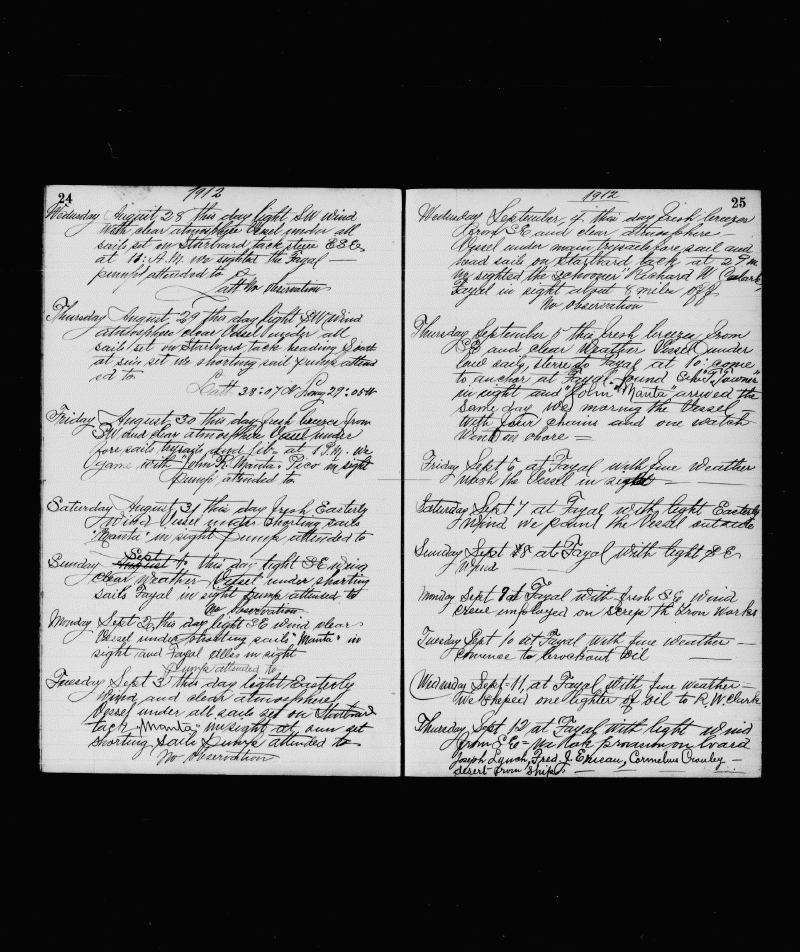 24
1912
Wednesday August 28 this day light SW wind
with clear atmosphere Vessel under all
sails set on Starboard tack steer ESE
at 10: A.M. we sighted the Fayal —
pump attended to
Latt No Observation
Thursday August 29 this day light SW wind
atmosphere clear Vessel under all
sails set on Starboard tack heading South
at sun set we shorting sail pump attend
ed to
Latt. 38:07 N Long 29:05 W
Friday August 30 this day fresh breeze from
SW and clear atmosphere Vessel under
fore sails trysails and jib at 1 P.M. we
game with "John R. Manta" Pico in sight
Pump attended to
Saturday August 31 this day fresh Easterly
wind Vessel under shorting sails
"Manta" in sight Pump attended to
Sept
Sunday August 1o this day light SE wind
clear weather Vessel under shorting
sails Fayal in sight pump attended to
No Observation
Monday Sept 2 this day light SE wind clear
Vessel under shorting sails "Manta" in
sight and Fayal alls in sight
Pump attended to
Tuesday Sept 3 this day light Easterly
Wind and clear atmosphere
Vessel under all sails set on Starboard
tack "Manta" in sight at sun set
shorting sails Pump attended to
No Observation
1912
25
Wednesday September 4 this day fresh breezes
from SE and clear atmosphere —
Vessel under main trysails fore sail and
head sails on Starboard tack at 2 P.m.
we sighted the schooner "Richard W Clark"
Fayal in sight about 8 miles off
No observation
Thursday September 5 this fresh breeze from
SE and clear Weather Vessel under
low sails steered to Fayal at 10: come
to anchor at Fayal. found Schr "Towner"
in sight and "John Manta" arrived the
same day we moring the Vessel
With four chains and one watch
Went on shore =
Friday Sept 6 at Fayal with fine weather
wash the Vessel in
Saturday Sept 7 at Fayal with light Easterly
Wind we paint the Vessel outside
Sunday Sept 8 at Fayal With light SE
Wind
Monday Sept 9 at Fayal with fresh SE wind
crew employed on scrape th Iron works
Tuesday Sept 10 at Fayal with fine weather —
comence to brockout oil
Wednesday Sept 11 at Fayal with fine weather —
We shiped one lighter of oil to R.W. Clark
Thursday Sept 12 at Fayal with light wind
from SE = we tok provision on board
Joseph Lynch, Fred J. Ericau, Cornelius Crowley —
desert from Ship.